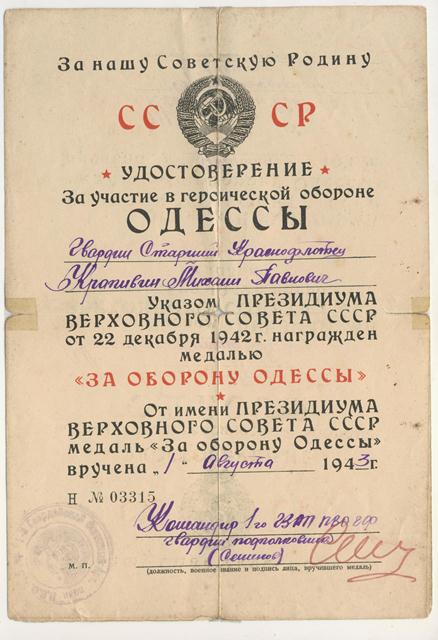 За нашу Советскую Родину
СС СР
УДОСТОВЕРЕНИЕ
За участие в героической обороне
ОДЕССЫ
Гвардии Старший Краснофлотец
Крапивин Михаил Павлович
Указом ПРЕЗИДИУМА
ВЕРХОВНОГО СОВЕТА СССР
от 22 декабря 1942 г. награжден
медалью
«ЗА ОБОРОНУ ОДЕССЫ»
От имени ПРЕЗИДИУМА
ВЕРХОВНОГО СОВЕТА СССР
медаль «За оборону Одессы»
вручена „1" августа 1943 г.
Н № 03315
Командир 1го ПВО
гвардии подполковник
М. П.
(должность, военное звание и подпись лица, вручившего медаль)